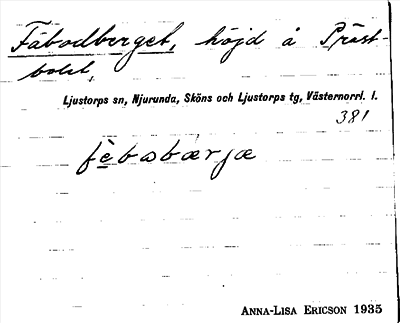 Fäbodberget, höjd å Präst-
bolet.
Ljustorps sn, Njurunda, Sköns och Ljustorps tg, Västernorrl. l.
381
fèbɷbærjæ
ANNA-LISA ERICSON 1935